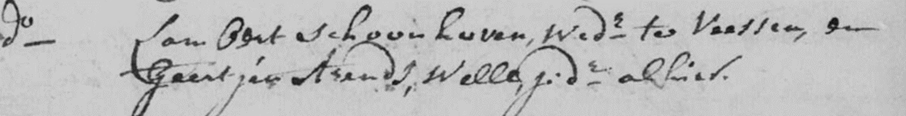 do Lambert Schoonhoven, wedr. te Veessen, en
Geertjen Arends, Welle, j:dr. alhier.